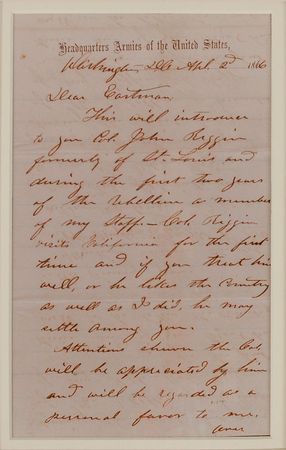 Headquarters Armies of the United States,
Washington, D.C. Apl. 2d 1866
Dear Eastman,
This will introduce
to you Col. John Riggin
formerly of St. Louis and
during the first two years
of the rebellion a member
of my Staff.— Col. Riggin
visits California for the first
time and if you treat him
well, or he likes the country
as well as I did, he may
settle among you.
Attentions shown the Col.
will be appreciated by him
and will be regarded as a
personal favor to me.
over